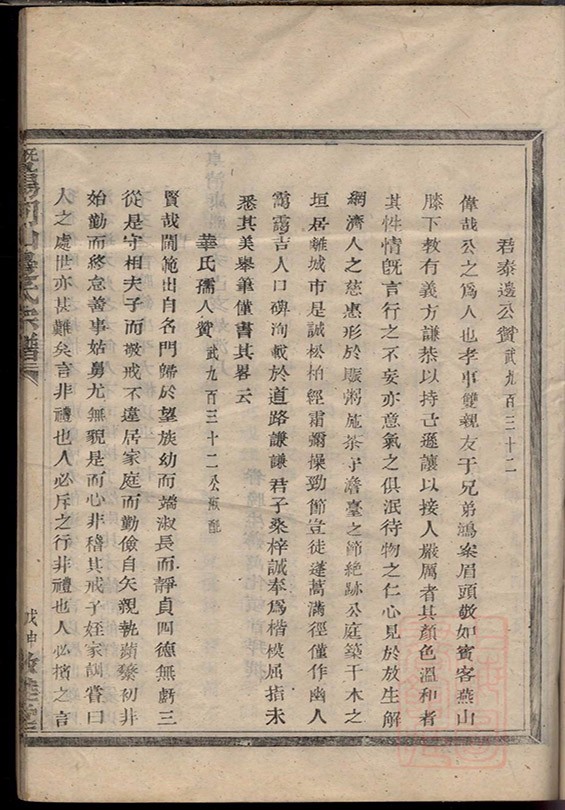 君泰邊公贊 武九百三十二
偉哉公之爲人也孝事雙親友于兄弟鴻案眉頭敬如賓客燕山
膝下敎有義方謙恭以持己遜讓以接人嚴厲者其顏色溫和者
其性情旣言行之不妄亦意氣之俱泯待物之仁心見於放生解
網濟人之慈惠形於賑粥施茶守澹臺之節絶跡公庭築干木之
垣居離城市是誠松柏經霜彌操勁節豈徒蓬蒿滿徑僅作幽人
靄靄吉人口碑洵載於道路謙謙君子桑梓誠奉爲楷模屈指未
悉其美舉筆僅書其畧云
華氏孺人贊 武九百三十二公淑配
賢哉閫範出自名門歸於望族幼而端淑長而靜貞四德無虧三
從是守相夫子而敬戒不違居家庭而勤儉自矢親執蘋蘩初非
始勤而終怠善事姑舅尤無貌是而心非稽其戒子姪家訓嘗曰
人之處世亦甚難矣言非禮也人必斥之行非禮也人必擯之言
戊申